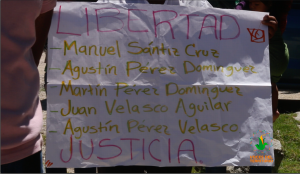 LIBERTAD YA!
- Manuel Sántiz Cruz
- Agustín Pérez Domínguez
- Martín Pérez Domínguez
- Juan Velasco Aguilar
- Agustín Pérez Velasco
JUSTICIA.